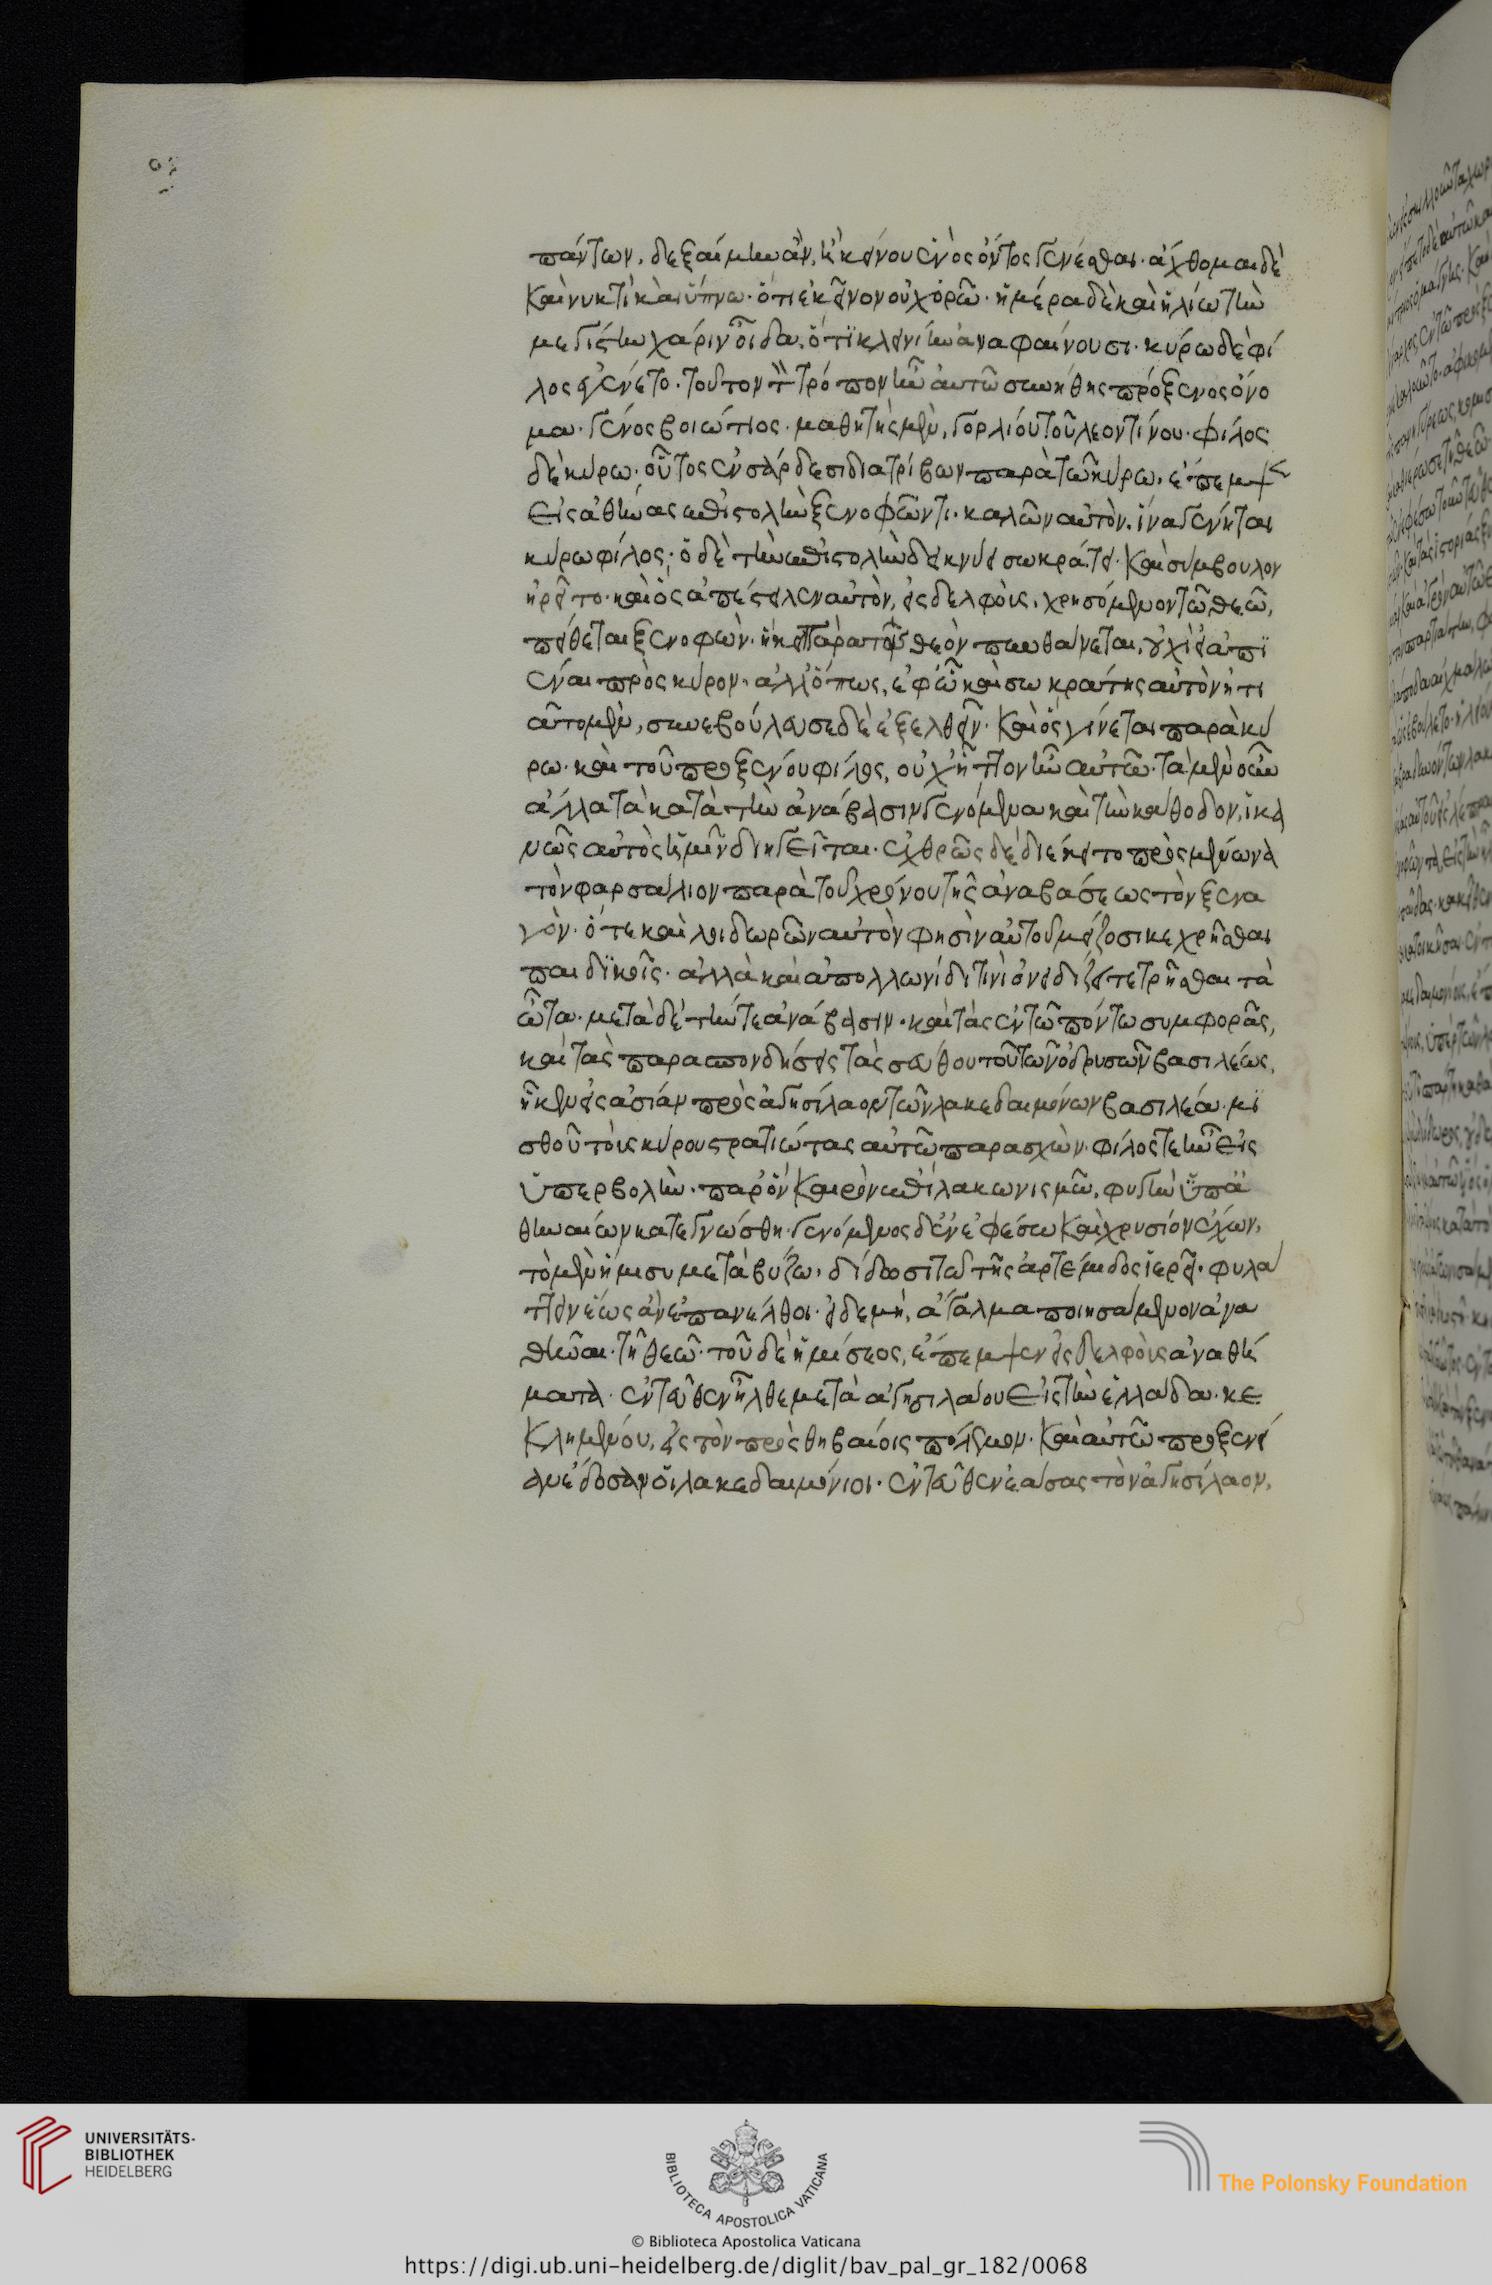 πάντων. δεξαίμην ἂν, ἢ ἐκείνου ἑνὸς ὄντος γενέσθαι. ἄχθομαι δὲ
καὶ νυκτὶ καὶ ὕπνω. ὅτι ἐκεῖνον οὐχ ὁρῶ. ἡμέρα δὲ καὶ ἡλίω τὴν
μεγίστην χάριν οἶδα. ὅτι κλεινίην ἀναφαίνουσι. κύρω δὲ φί
λος ἐγένετο. τοῦτον τὸν τρόπον ἦν αὐτῶ συνήθης πρόξενος ὄνο
μα. γένος βοιώτιος. μαθητὴς μὲν, γοργίου τοῦ λεοντίνου. φίλος
δὲ κύρω. οὗτος ἐν σάρδεσι διατρίβων παρὰ τῶ κύρω. ἔπεμψεν
εἰς ἀθήνας ἐπιστολὴν ξενοφῶντι. καλῶν αὐτὸν. ἵνα γένηται
κύρω φίλος. ὁ δὲ τὴν ἐπιστολὴν δεικνύει σωκράτει. καὶ σύμβουλον
ἡρεῖτο. καὶ ὃς ἀπέστειλεν αὐτὸν, εἰς δελφοὺς. χρησόμενον τῶ θεῶ.
πείθεται ξενοφῶν. ἥκει παρὰ τὸν θεὸν πυνθάνεται, οὐχὶ εἰ ἀπι
έναι πρὸς κύρον. ἀλλ' ὅπως, ἐφ' ὧ καὶ σωκράτης αὐτὸν ἠτι
ᾶτο μὲν, συνεβούλευσε δὲ ἐξελθεῖν. καὶ ὃς γίνεται παρὰ κύ
ρω. καὶ τοῦ προξένου φίλος, οὐχ ἧττον ἦν αὐτῶ. τὰ μὲν οὖν
ἄλλα τὰ κατὰ τὴν ἀνάβασιν γενόμενα καὶ τὴν κάθοδον, ἱκα
νῶς αὐτὸς ἡμῖν διηγεῖται. ἐχθρῶς δὲ διέκειτο πρὸς μένωνα
τὸν φαρσάλιον παρὰ τοῦ χρόνου τῆς ἀναβάσεως τὸν ξενα
γὸν. ὅτε καὶ λοιδωρῶν αὐτὸν φησὶν αὐτοῦ μείζοσι κεχρῆσθαι
παιδικοῖς. ἀλλὰ καὶ ἀπολλωνίδι τινὶ ὀνειδίζει τετρῆσθαι τὰ
ὦτα. μετὰ δὲ τήν τε ἀνάβασιν. καὶ τὰς ἐν τῶ πόντω συμφορᾶς,
καὶ τὰς παρασπονδήσεις τὰς σεύθου τοῦ τῶν ὀδρυσῶν βασιλέως,
ἧκεν εἰς ἀσίαν πρὸς ἀγησίλαον τῶν λακεδαιμόνων βασιλέα. μι
σθοῦ τοὺς κύρου στρατιώτας αὐτῶ παρασχὼν. φίλος τε ἦν εἰς
ὑπερβολὴν. παρ' ὃν καιρὸν ἐπὶ λακωνισμῶ, φυγὴν ὑπ' ἀ
θηναίων κατεγνώσθη. γενόμενος δ' ἐν ἐφέσω καὶ χρυσίον ἔχων,
τὸ μὲν ἥμισυ μεγαβύζω. δίδωσι τῶ τῆς ἀρτέμιδος ἱερεῖ. φυλά
ττειν ἕως ἂν ἐπανέλθοι. εἰ δὲ μὴ, ἄγαλμα ποιησάμενον ἀνα
θεῖναι. τῆ θεῶ. τοῦ δὲ ἡμίσεος, ἔπεμψεν εἰς δελφοὺς ἀναθή
ματα. ἐντεῦθεν ἦλθε μετὰ ἀγησιλάου εἰς τὴν ἑλλάδα. κε
κλημένου, εἰς τὸν πρὸς θηβαίοις πόλεμον. καὶ αὐτῶ προξενεί
αν ἔδοσαν οἱ λακεδαιμόνιοι. ἐντεῦθεν ἐάσας τὸν ἀγησίλαον,
UNIVERSITÄTS-
BIBLIOTHEK
HEIDELBERG
BIBLIOTECA APOSTOLICA VATICANA
© Biblioteca Apostolica Vaticana
The Polonsky Foundation
https://digi.ub.uni-heidelberg.de/diglit/bav_pal_gr_182/0068